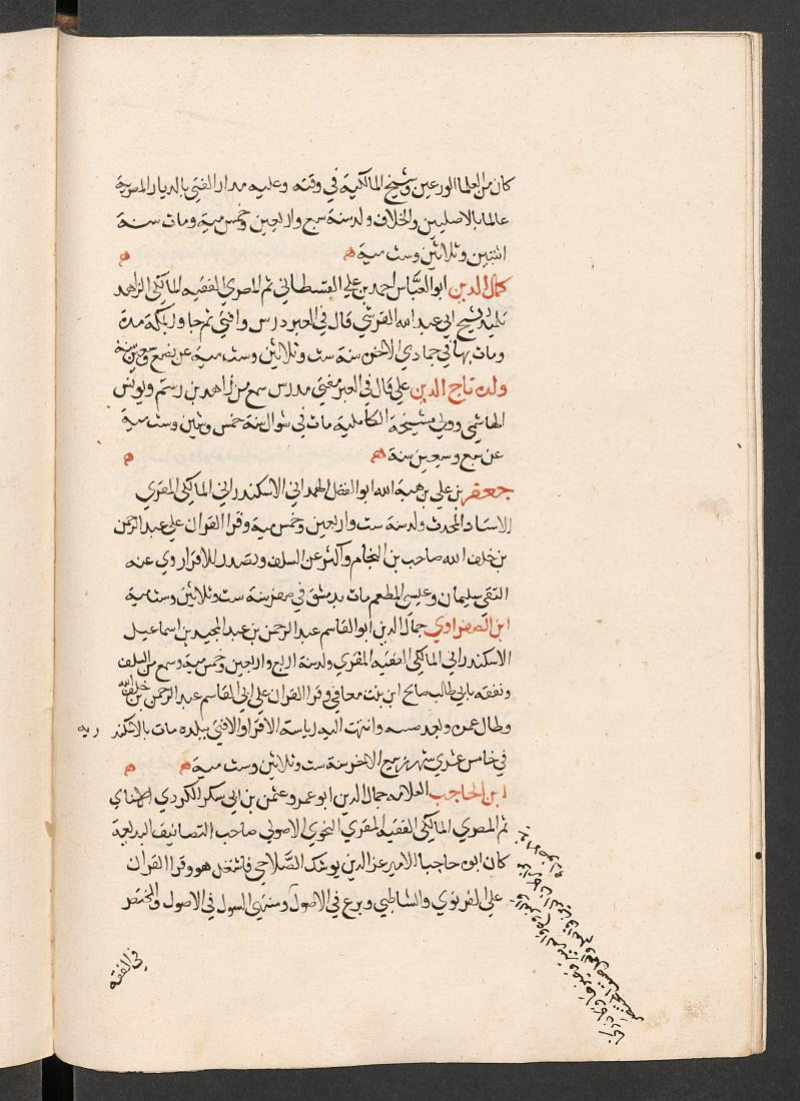 كان من العلما الورعين وشيخ المالكية في وقته وعليه مدار الفتيى بالديار المصرية
عالما بالاصلين والخلاف ولد سنة سبع واربعين وخمس مية ومات سنة
اثنتين وثلاثين وست مية ه ه
كمال الدين ابو العباس احمد بن علي القسطلاني ثم المصري الفقيه المالكي الزاهد
تلميذ الشيخ ابي عبد الله القرشي قال في العبر درس وافتى ثم جاور بمكة مدة
ومات بها في جمادي الاخرة سنة ست وثلاثين وست مية عن بضع وسبعين سنة
ولده تاج الدين علي قال في العبر مفتي مدرس سمع من زاهد بن رستم ويونس
الهاشمي وولي مشيخة الكاملية مات في شوال سنة خمس وستين وست مية
عن سبع وسبعين سنة ه ه
جعفر بن علي بن هبة الله ابو الفضل الهمداني الاسكندراني المالكي المقري
الاستاد المحدث ولد سنة ست واربعين وخمس مية وقرا القران علي عبد الرحمن
بن خلف الله صاحب بن الفحام واكثر عن السلفى وتصدر للاقرا روي عنه
التقي سليمان وعيسي المطعم مات بدمشق في صفر سنة ست وثلاثين وست مية
ابن الصفراوي جمال الدين ابو القاسم عبد الرحمن بن عبد المجيد بن اسماعيل
الاسكندراني المالكي الفقيه المقري ولد سنة اربع واربعين وخمس مية وسمع من السلفى
وتفقه بابي طالب صالح ابن بنت معافي وقرا القران علي ابي القاسم عبد الرحمن بن خلف الله
وطال عمره وبعد صيته وانتهت اليه رياسة الاقرا والافتى ببلده مات بالاسكند رية
في خامس عشري شهر ربيع الاخر سنة ست وثلاثين وست مية ه ه
ابن الحاجب العلامه جمال الدين ابو عمرو عثمن بن ابي بكر الكردي الاسناي
ثم المصري المالكي الفقيه المقري النحوي الاصولي صاحب التصانيف البديعة
كان ابوه حاجبا للامير عز الدين يوشك الصلاحي فاشتغل هو وقرا القران
علي الغزنوي والشاطبي وبرع في الاصول ومنتهى السول في الاصول والمختصر
في الفقه